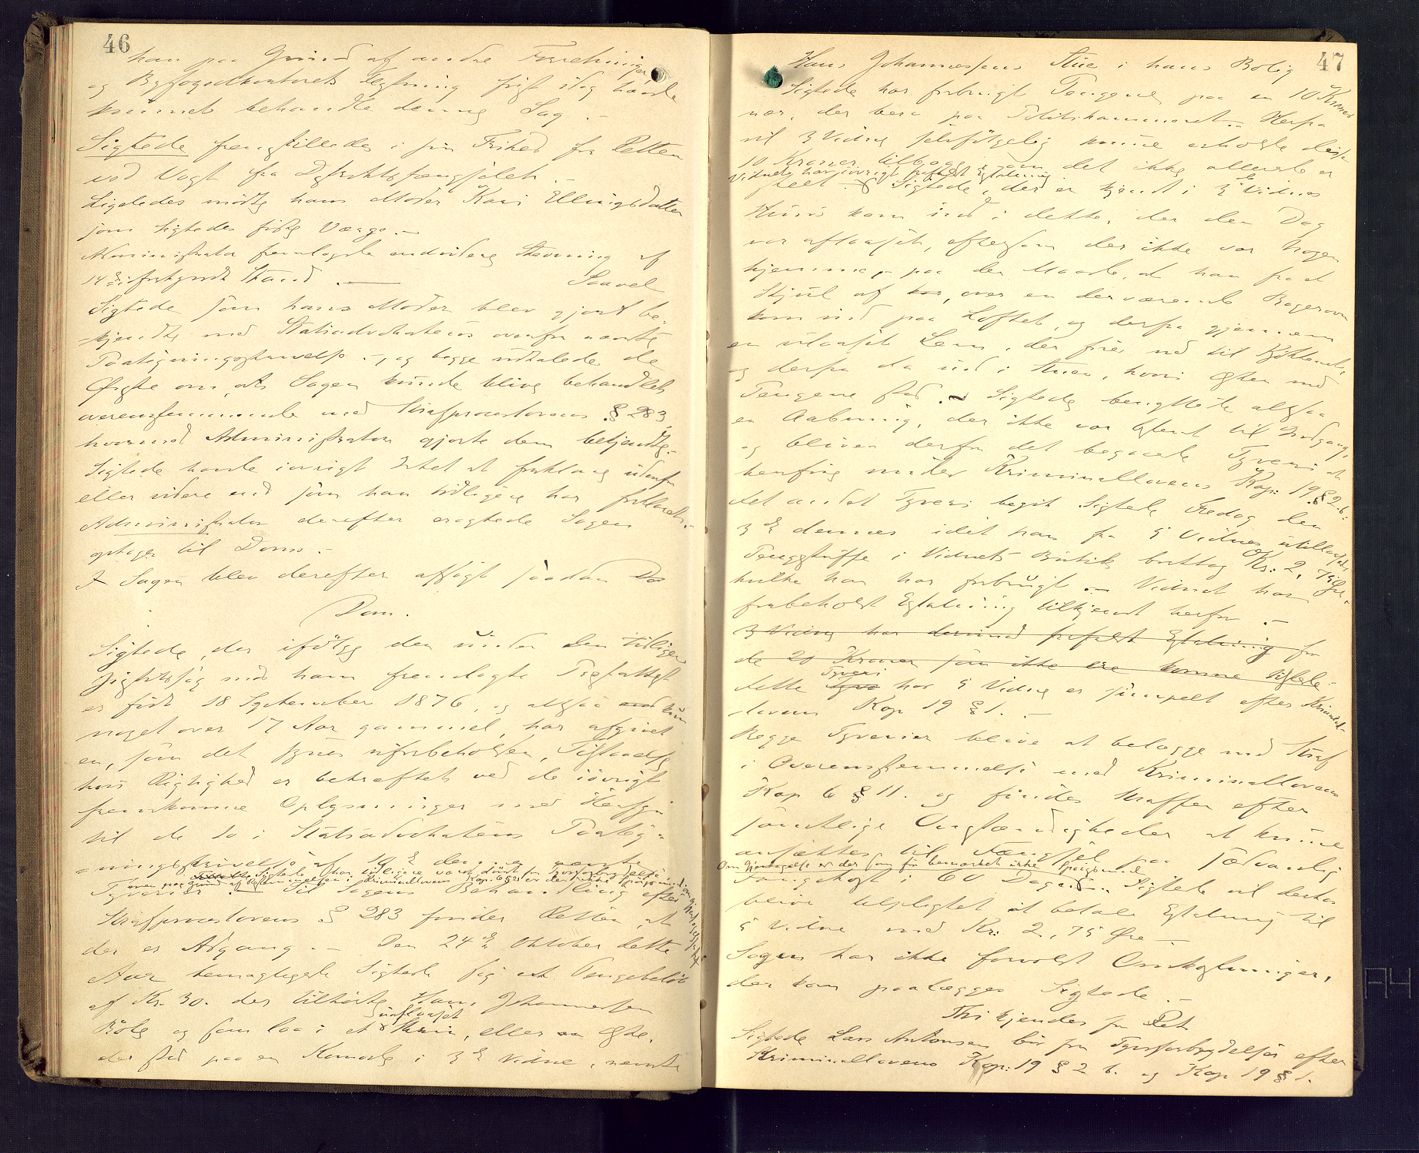 46
han paa Grund af andre Forretninger
og Byfogedkontorets Flytning først idag havde
kunnet behandle denne Sag. -
Sigtede fremstilledes i sin Frihed for Retten
ved Vagt fra Distriktsfængslet. -
Ligeledes mødte hans Moder Kari Ellingsdatter
som Sigtedes Værge. -
Administrator fremlagde endvidere Stævning af
14 ds. i forkyndt Stand. - Saavel
Sigtede som hans Moder blev gjort be-
kjendte med Statsadvokatens ovenfor nævnte
Paategningsskrivelse -, og begge udtalede de
Ønske om, at Sagen kunde blive behandlet
overensstemmende med Straffprocesslovens § 283,
hvormed Administrator gjorde dem bekjendt. -
Sigtede havde iøvrigt Intet at forklare udenfor
eller videre end som han tidligere har forklaret. -
Administrator derefter eragtede Sagen
optagen til Doms. -
I Sagen blev derefter afsagt saadan
Dom.
Sigtede, der ifølge den under den tidligere
Sigtelsessag mod ham fremlagte Døbsattest
er født 18 September 1876, og altsaa kun
noget over 17 Aar gammel, har afgivet
en, som det synes uforbeholden, Tilstaaelse
hvis Rigtighed er bekræftet ved de iøvrigt
fremkomne Oplysninger med Hensyn
til de to i Statsadvokatens Paateg-
ningsskrivelse af 14 ds. nævnte
Tyverier. - Til Sagens Behandling efter
Straffprocesslovens § 283 finder Retten, at
der er Adgang. - Den 24de Oktober dette
Aar bemægtigede Sigtede sig et Pengebeløb
af Kr. 30. der tilhørte Hans Johannessen
uaflaaset
og som laa i et Skrin, eller en Æske,
der stod paa en Komode i 3de Vidne, nævnte
47
Hans Johannessens Stue i hans Bolig
Sigtede har forbrugt Pengene paa en 10 Kroner
nær, der bero paa Politikammeret. - Herfra
vil 3 Vidne selvfølgelig kunne erholde disse
10 Kroner tilbage, om det ikke allerede er
Vidnet har iøvrigt frafaldt Erstatning
skeet. - Sigtede, der er kjendt i 3de Vidnes
Huus kom ind i dette, der den Dag
var aflaaset, eftersom der ikke var nogen
hjemme, paa den Maade, at han fra et
Skjul af, over en derværende Bagerovn
kom ind paa Loftet, og derfra gjennem
en uaflaaset Lem, der fører ned til Kjøkkenet,
og derfra da ind i Stuen, hvori Æsken med
Pengene stod. - Sigtede benyttede altsaa
en Aabning, der ikke var tjent til Indgang,
og bliver derfor det begaaede Tyveri at
henføre under Kriminallovens Kap: 19 § 2 b:
det andet Tyveri begik Sigtede Fredag den
3de dennes idet han fra 5 Vidnes utillaasede
Pengeskuffe i Vidnets Butik borttog Kr: 2, 75 Øre,
hvilke han har forbrugt. - Vidnet har
forbeholdt Erstatning tilkjendt herfor. -
3 Vidne har derimod frafaldt Erstatning for
de 20 Kroner som ikke ere komne tilstede
Tyveri
dette hos 5 Vidne er simpelt efter Kriminal-
lovens Kap 19 § 1. -
Begge Tyverier blive at belægge med Straf
i Overensstemmelse med Kriminalloven
Kap 6 § 11. og findes Straffen efter
samtlige Omstændigheder at kunne
ansættes til Fængsel paa sædvanlig
Om Gjentagelse er der som før bemærket ikke Spørgsmaal
Fangekost i 60 Dage. Sigtede vil derhos
blive tilpligtet at betale Erstatning til
5 Vidne med Kr: 2, 75 Øre -
Sagen har ikke forvoldt Omkostninger,
der kan paalægges Sigtede. -
Thi kjendes for Ret
Sigtede Lars Antonsen bør for Tyvsforbrydelser efter
Kriminallovens Kap: 19 § 2 b. og Kap 19 § 1.